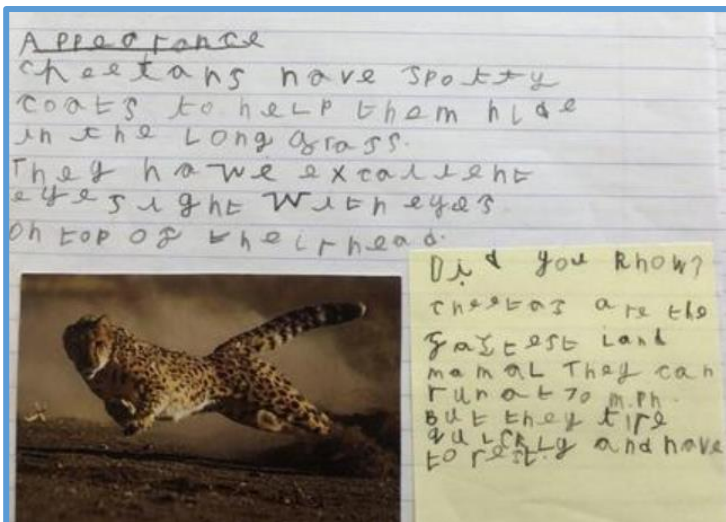 Appearance
cheetahs have spotty
coats to help them hide
in the long grass.
They hawe excallent
eyesight with eyes
on top of their head.
Did you know?
cheetas are the
fastest land
mamal They can
run at 70 m.ph.
But they tire
quickly and have
to rest.